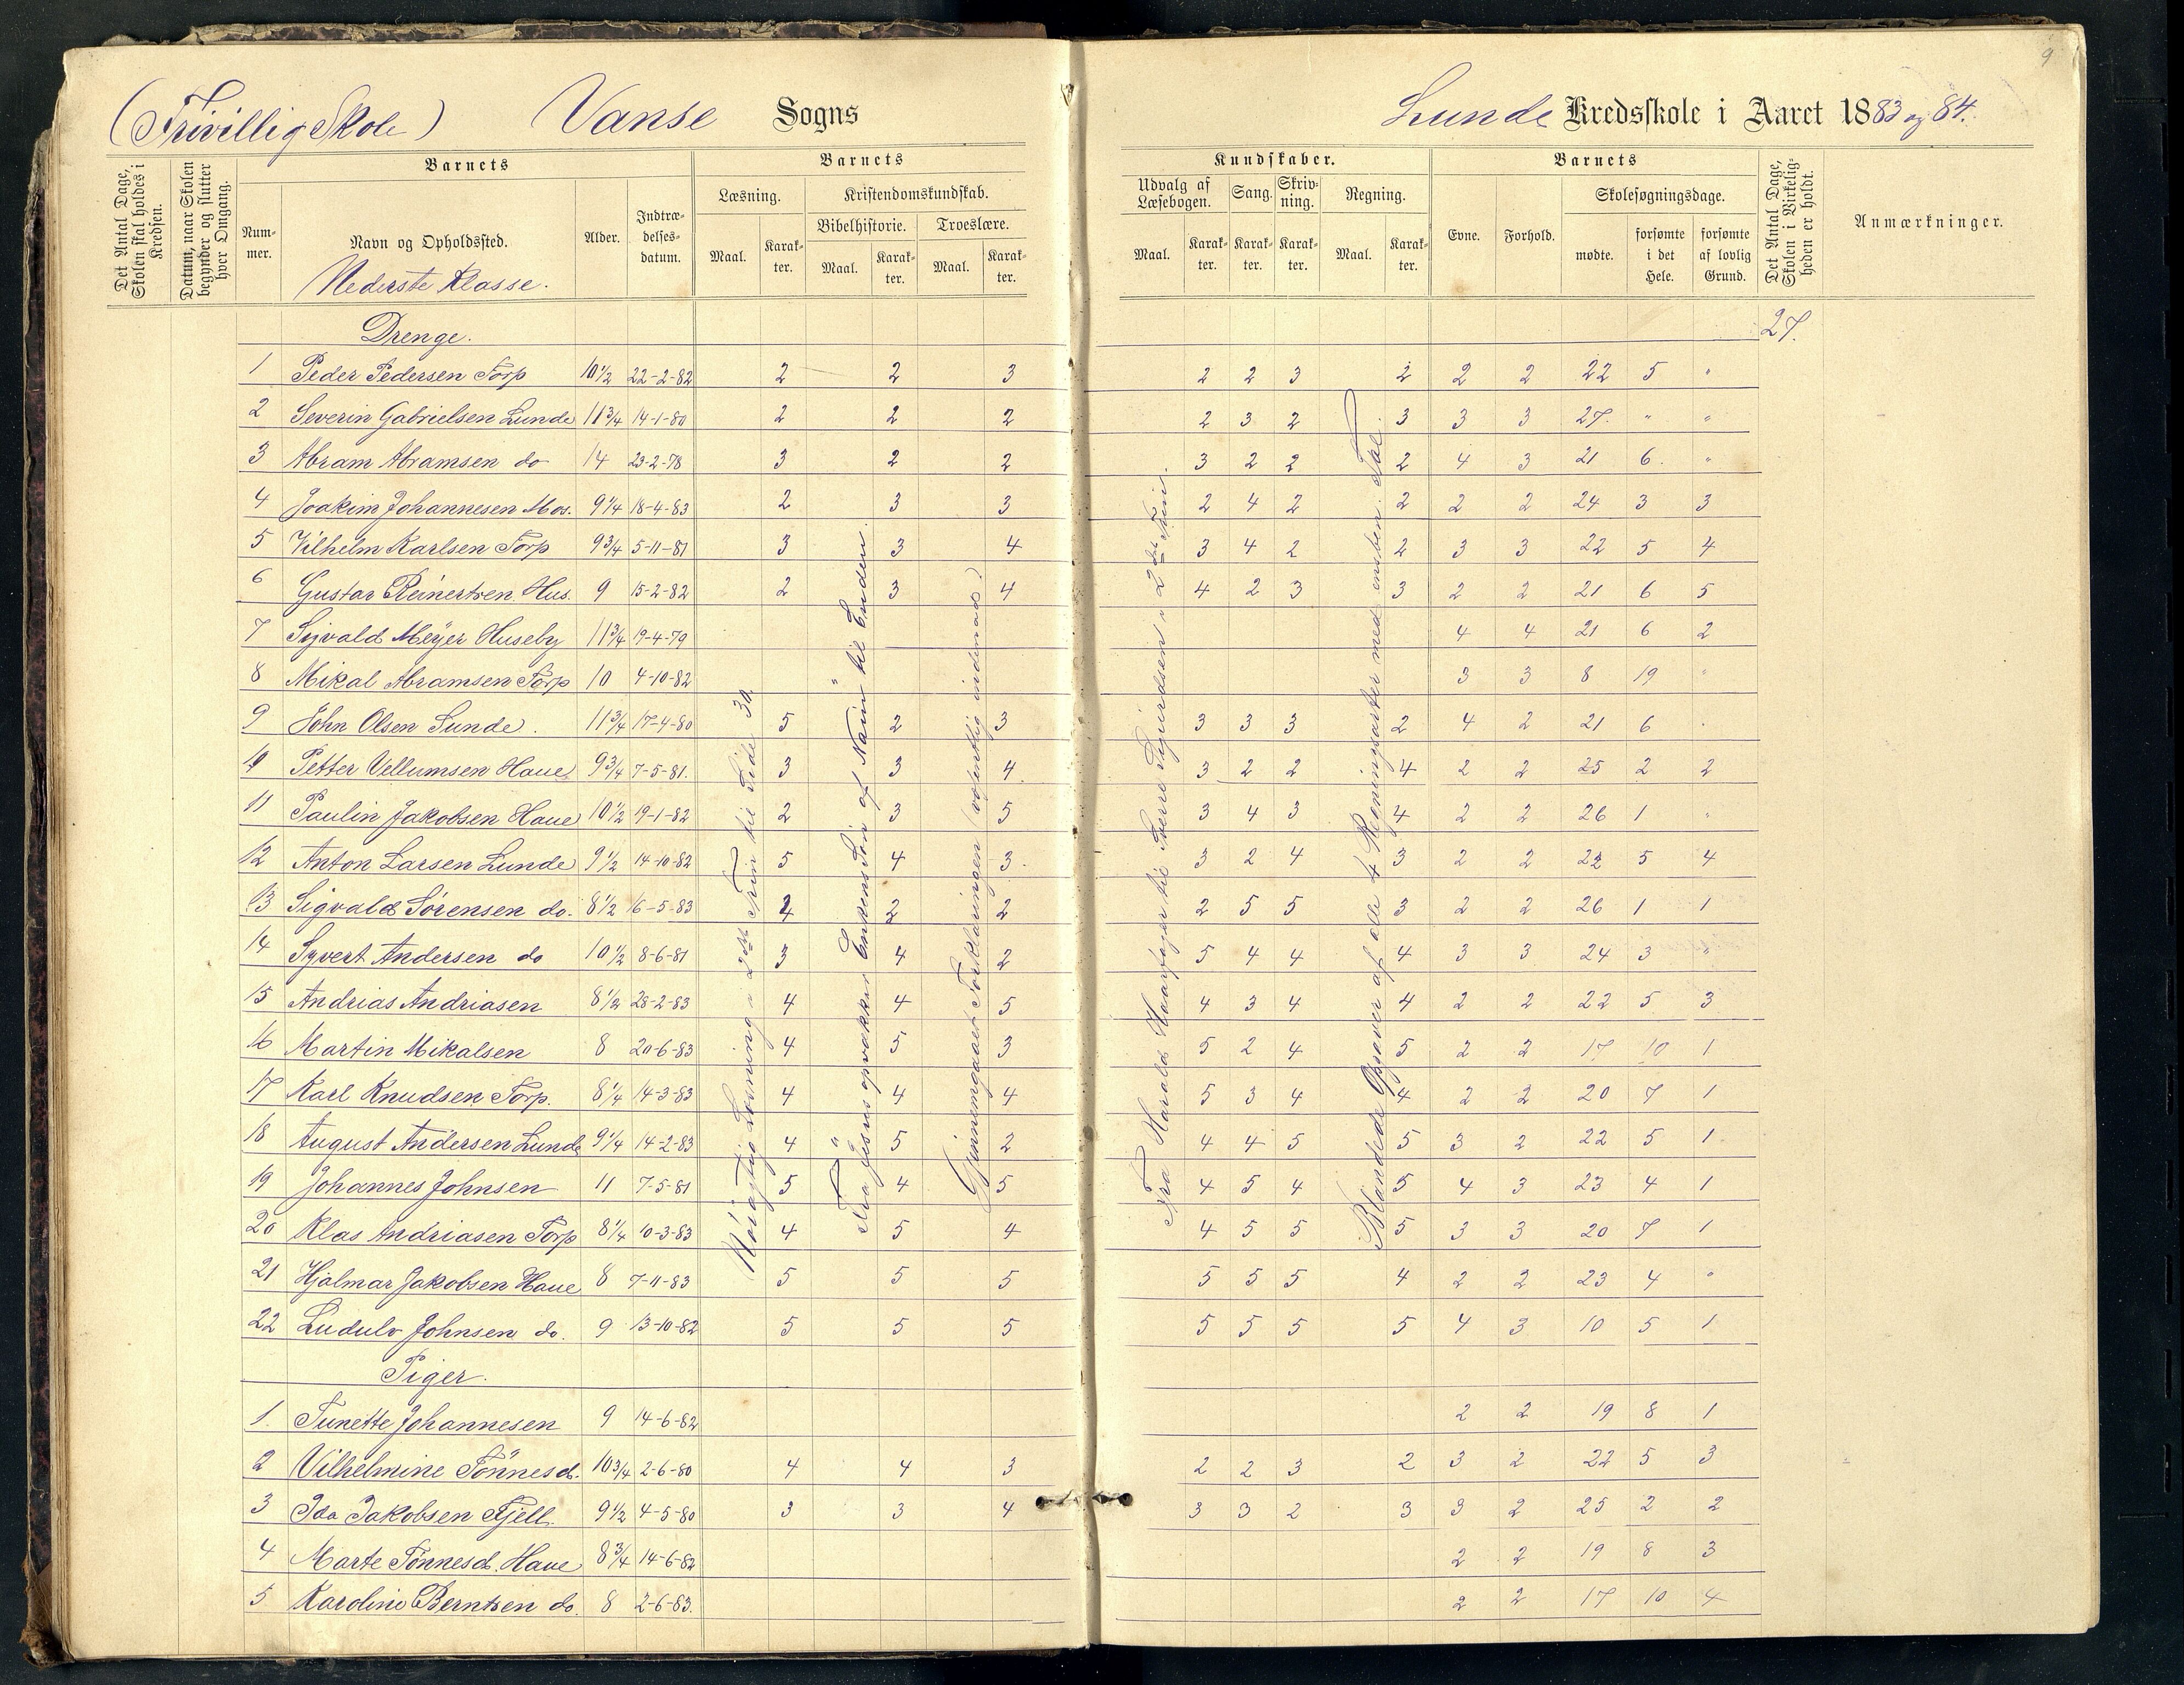 9
(Frivillig Skole) Vanse Sogns
Lunde Kredsskole i Aaret 1883 og 84.
Det Antal Dage, Skolen skal holdes i Kredsen.
Datum, naar Skolen begynder og slutter hver Omgang.
Barnets
Nummer.
Navn og Opholdssted.
Nederste Klasse.
Alder.
Indtrædelsesdatum.
Barnets
Læsning.
Maal.
Karakter.
Kristendomskundskab.
Bibelhistorie.
Maal.
Karakter.
Troeslære.
Maal.
Karakter.
Kundskaber.
Udvalg af Læsebogen.
Maal.
Karakter.
Sang.
Karakter.
Skrivning.
Karakter.
Regning.
Maal.
Karakter.
Barnets
Evne.
Forhold.
Skolesøgningsdage.
mødte.
forsømte i det Hele.
forsømte af lovlig Grund.
Det Antal Dage, Skolen i Virkeligheden er holdt.
Anmærkninger.
Drenge. 27.
1 Peder Pedersen Torp 10 1/2 22-2-82 2 2 3 2 2 3 2 2 2 22 5 "
2 Severin Gabrielsen Lunde 11 3/4 14-1-80 2 2 2 2 3 2 3 3 3 27 " "
3 Abram Abramsen do 14 23-2-78 3 2 2 3 2 2 2 4 3 21 6 "
4 Joakim Johannesen Mos. 9 1/4 18-4-83 2 3 3 2 4 2 2 2 2 24 3 3
5 Vilhelm Karlsen Torp 9 3/4 5-11-81 3 3 4 3 4 2 2 3 3 22 5 4
6 Gustav Reinertsen Hus. 9 15-2-82 2 3 4 4 2 3 3 2 2 21 6 5
7 Sigvald Meyer Huseby 11 3/4 19-4-79 4 4 21 6 2
8 Mikal Abramsen Torp 10 4-10-82 3 3 8 19 "
9 John Olsen Sunde. 11 3/4 17-4-80 5 2 3 3 3 3 2 4 2 21 6
10 Petter Vellumsen Haue 9 3/4 7-5-81. 3 3 4 3 2 2 4 2 2 25 2 2
11 Paulin Jakobsen Haue 10 1/2 19-1-82 2 3 5 3 4 3 4 2 2 26 1 "
12 Anton Larsen Lunde 9 1/2 14-10-82 5 4 3 3 2 4 3 2 2 22 5 4
13 Sigvald Sørensen do. 8 1/2 16-5-83 4 2 2 2 5 5 3 2 2 26 1 1
14 Syvert Andersen do 10 1/2 8-6-81 3 4 2 5 4 4 4 3 3 24 3 "
15 Andrias Andriasen 8 1/2 28-2-83 4 4 5 4 3 4 4 2 2 22 5 3
16 Martin Mikalsen 8 20-6-83 4 5 3 5 2 4 5 2 2 17 10 1
17 Karl Knudsen Torp. 8 1/4 14-3-83 4 4 4 5 3 4 4 2 2 20 7 1
18 August Andersen Lunde 9 1/4 14-2-83 4 5 2 4 4 5 5 3 2 22 5 1
19 Johannes Johnsen 11 7-5-81 5 4 5 4 5 4 5 4 3 23 4 1
20 Klas Andriasen Torp 8 1/4 10-3-83 4 5 4 4 5 5 5 3 3 20 7 1
21 Hjalmar Jakobsen Haue 8 7-11-83 5 5 5 5 5 5 4 2 2 23 4 "
22 Ludulv Johnsen do. 9 13-10-82 5 5 5 5 5 5 5 4 3 10 5 1
Nøiagtig Læsning i 2det Trin til Side 30.
Fra Jesus opvækker Enkens Søn af Nain til Enden.
Gjennemgaaet Forklaringen (væsentlig indenad)
Fra Harald Haarfager til Sverre Sigurdsen i 2det Trin.
Blandede Opgaver af alle 4 Regningsarter med ensben. Tal.
Piger.
1. Tunette Johannesen 9 14-6-82 2 2 19 8 1
2 Vilhelmine Tönnesd. 10 3/4 2-6-80 4 4 3 2 2 3 2 3 2 22 5 3
3 Ida Jakobsen Fjell. 9 1/2 4-5-80 3 3 4 3 3 2 3 3 2 25 2 2
4 Marte Tönnesd. Haue 8 3/4 14-6-82 2 2 19 8 3
5 Karoline Berntsen do. 8 2-6-83. 2 2 17 10 4